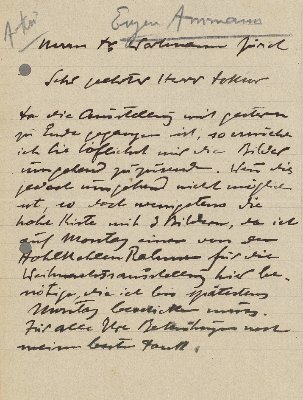 Eugen Ammann
Herrn Dr Wartmann Zürich
Sehr geehrter Herr Doktor
Da die Ausstellung mit gestern
zu Ende gegangen ist, so ersuche
ich Sie höflichst mir die Bilder
umgehend zuzusenden. Wenn dies
jedoch umgehend nicht möglich
ist, so doch wenigstens die
hohe Kiste mit 3 Bildern, da ich
auf Montag einen von den
Hohlkehlen Rahmen für die
Weihnachtsausstellung hier be-
nötige, die ich bis spätestens
Montag beschicken muss.
Für alle Ihre Bemühungen noch
meinen besten Dank.